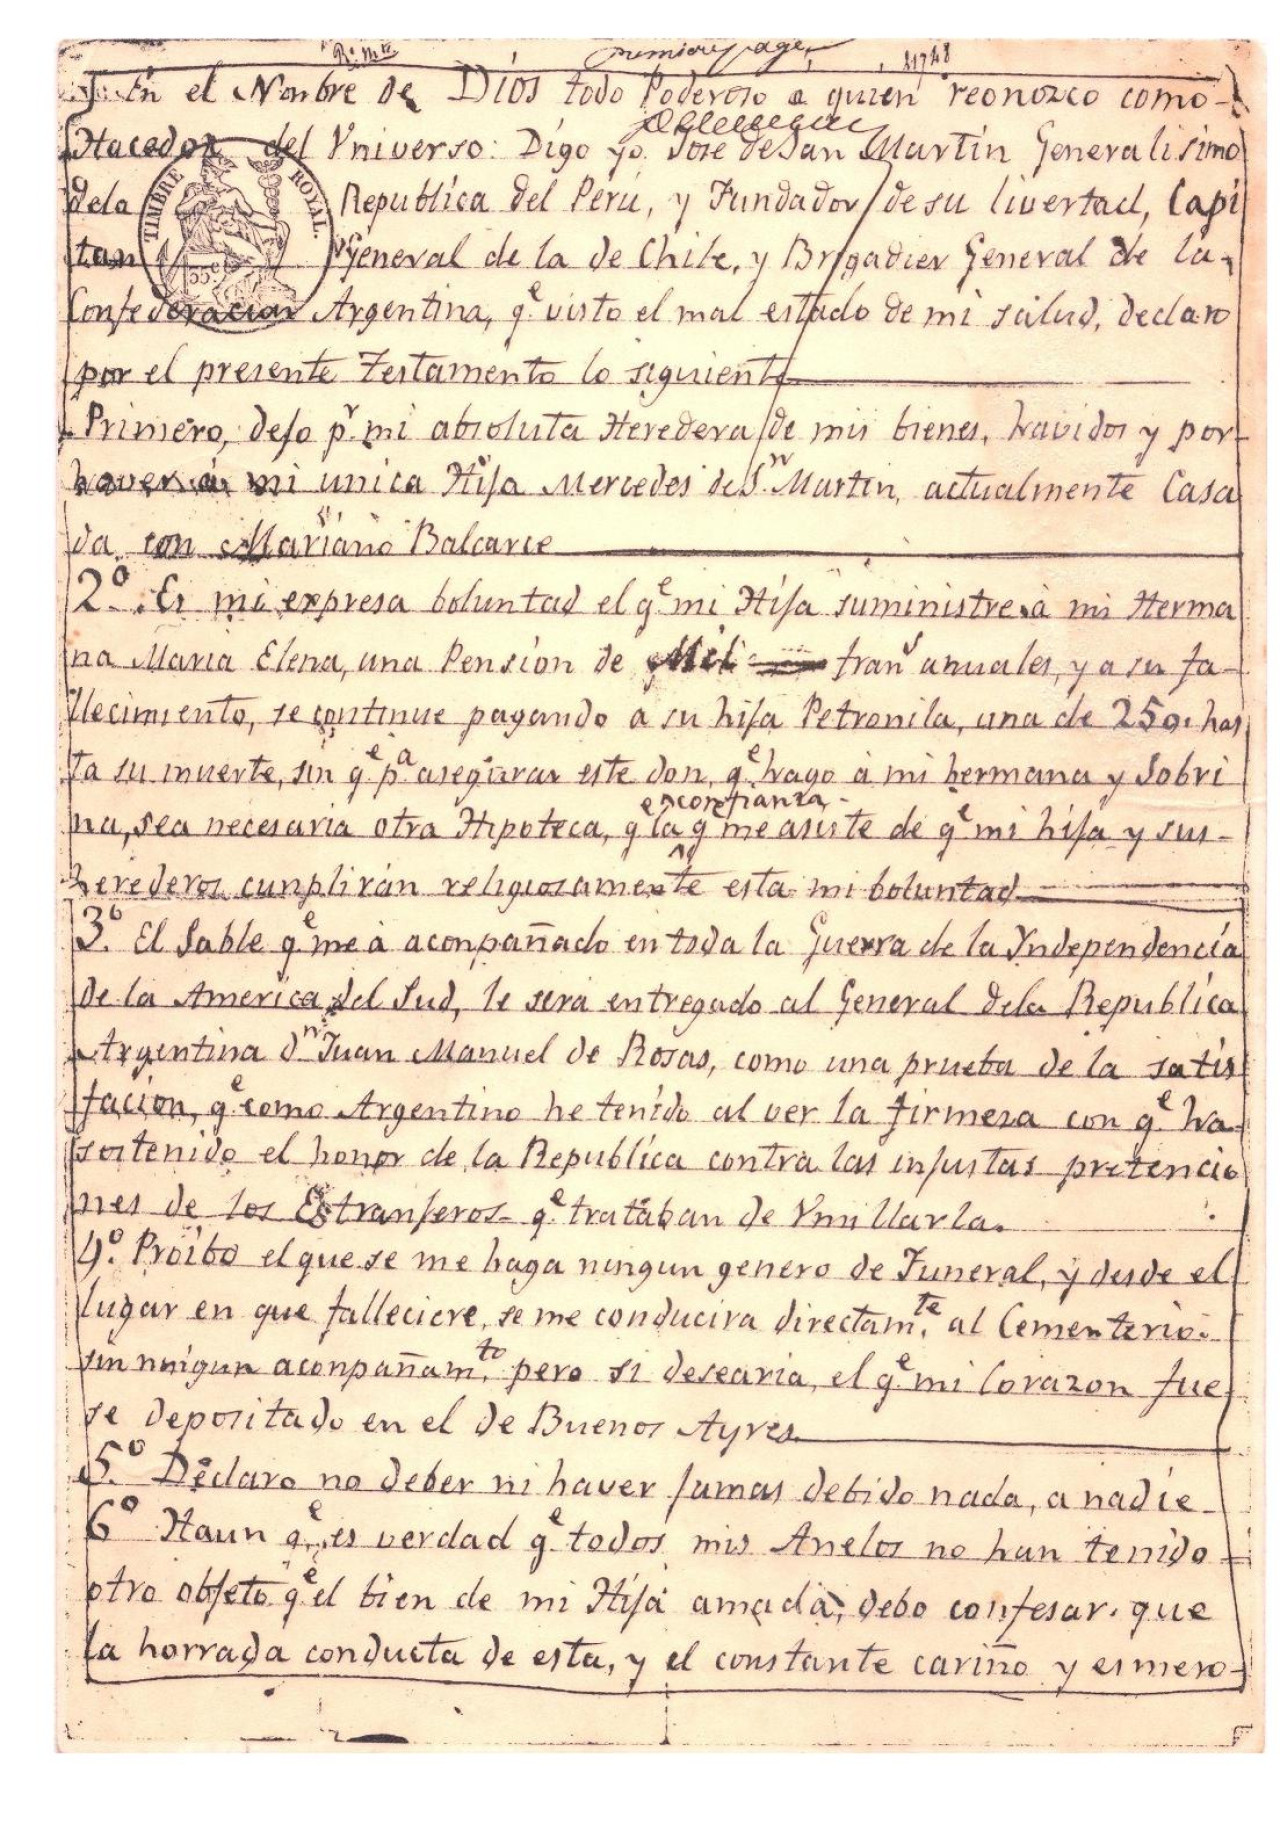 premiere page
En el Nonbre de Dios todo Poderoso a quien reonozco como
Hacedor del Vniverso: Digo yo Jose de San Martin Generalisimo
dela Republica del Perú, y Fundador de su livertad, Capi
TIMBRE ROYAL.
35c
tan General de la de Chile, y Brigadier General de la
Confederacion Argentina, qe visto el mal estado de mi salud, declaro
por el presente Testamento lo siguiente
Primero, dejo pr. mi absoluta Heredera de mis bienes, havidos y por
haver à mi unica Hija Mercedes de Sn. Martin, actualmente Casa
da con Mariano Balcarce
2º. Es mi expresa boluntad el qe mi Hija suministre à mi Herma
na Maria Elena, una Pension de Mil frans anuales, y a su fa-
llecimiento, se continue pagando a su hija Petronila, una de 250. has
ta su muerte, sin qe pa asegurar este don, qe hago à mi hermana y Sobri
na, sea necesaria otra Hipoteca, qe la confianza qe me asiste de qe mi hija y sus-
herederos cunplirán religiosamente esta mi boluntad
3º. El Sable qe me à aconpañado en toda la Guerra de la Yndependencia
de la America del Sud, le será entregado al General dela Republica
Argentina Dn Juan Manuel de Rosas, como una prueba de la satis
facion, qe como Argentino he tenido al ver la firmeza con qe ha-
sostenido el honor de la Republica contra las injustas pretencio
nes de los Estranjeros qe trataban de Vmillarla.
4º. Proibo el que se me haga ningun genero de Funeral, y desde el
lugar en que falleciere, se me conducira directamte. al Cementerio
sin ningun aconpañamto. pero si desearia, el qe mi Corazon fue
se depositado en el de Buenos Ayres
5.º Declaro no deber ni haver jamas debido nada, a nadie
6º Haun qe. es verdad qe todos mis Anelos no han tenido
otro objeto qe el bien de mi Hija amada, debo confesar, que
la horrada conducta de esta, y el constante cariño y esmero-